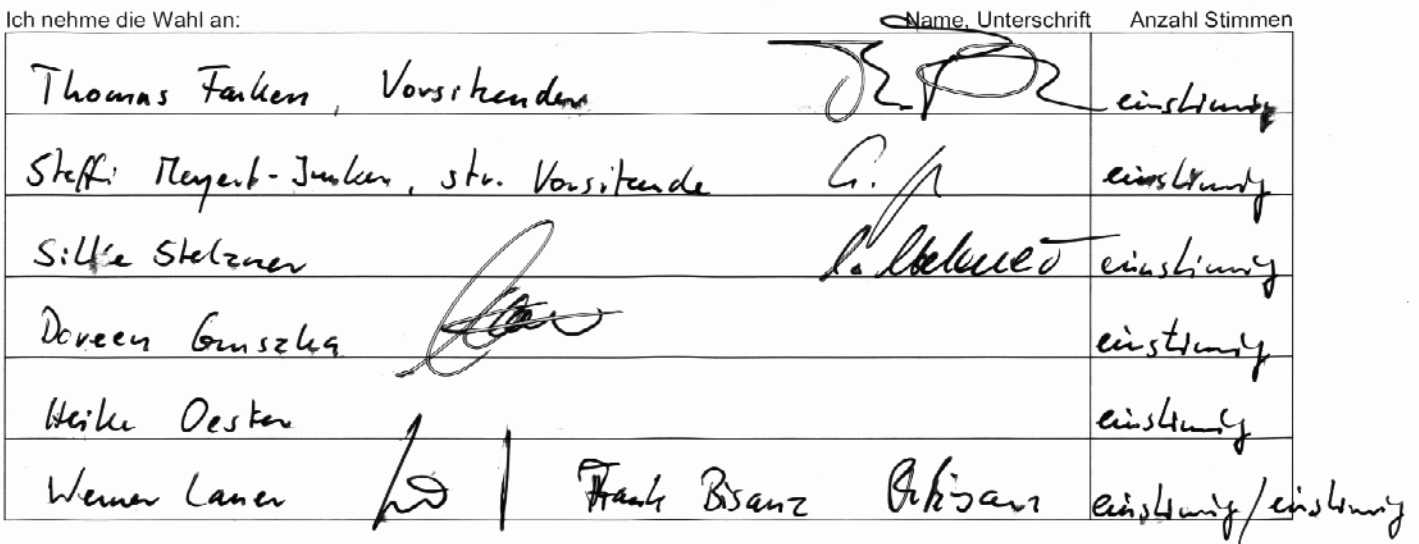 Ich nehme die Wahl an: Name, Unterschrift Anzahl Stimmen
Thomas Farken, Vorsitzender einstimmig
Steffi Meyert-Junker, stv. Vorsitzende einstimmig
Silke Stelzner einstimmig
Doreen Gruszka einstimmig
Heike Oester einstimmig
Werner Lauer Frank Bisanz einstimmig/einstimmig